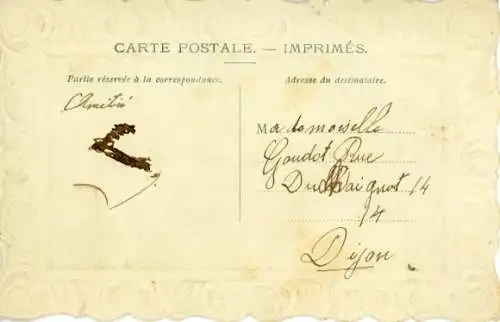 CARTE POSTALE. — IMPRIMÉS.
Partie réservée à la correspondance.
Adresse du destinataire.
Amitié
Mademoiselle
Goudot Rue
14
14
Dijon